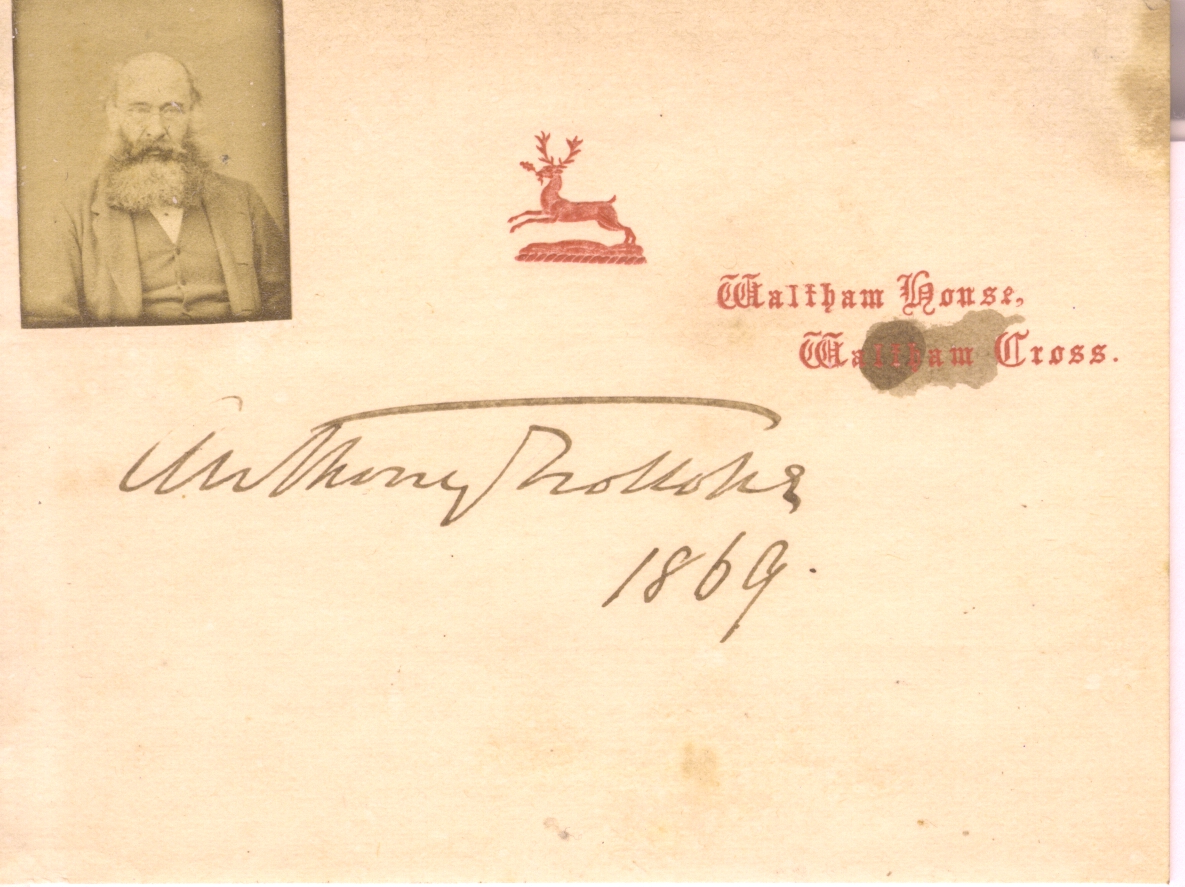 Waltham House,
Waltham Cross.
Anthony Trollope
1869.